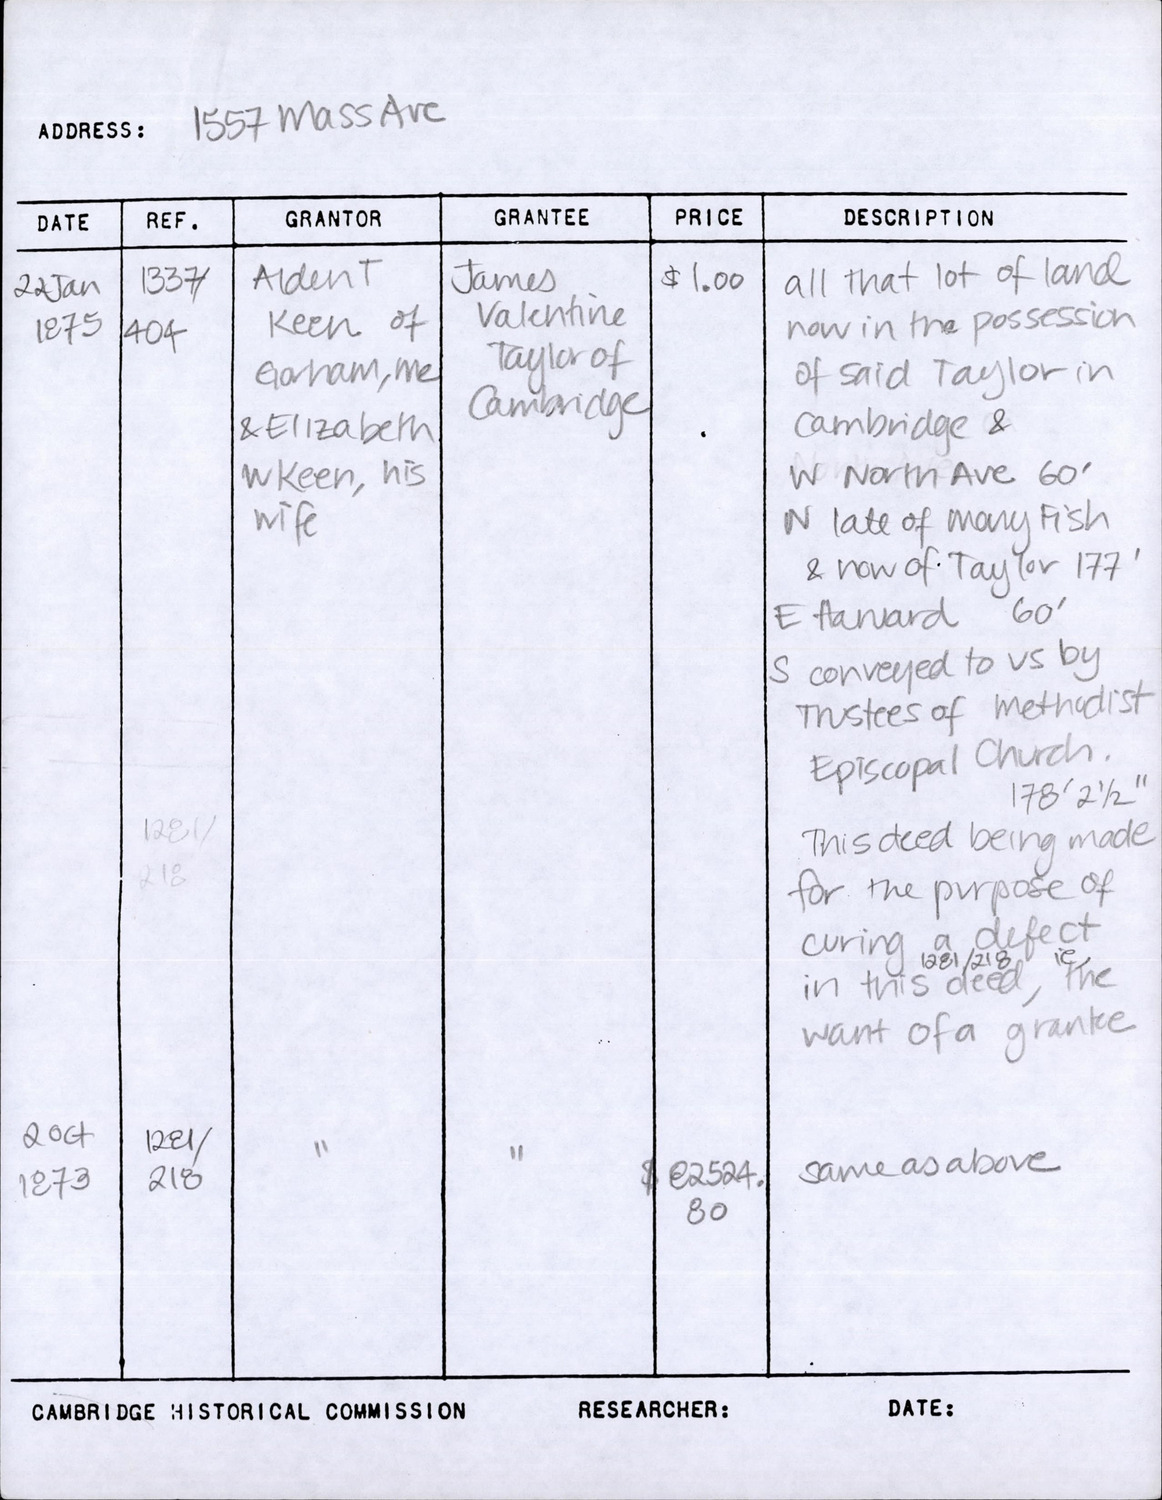 ADDRESS: 1557 Mass Ave
DATE REF. GRANTOR GRANTEE PRICE DESCRIPTION
22 Jan
1875
1337/
404
Alden T
Keen of
Gorham, Me
& Elizabeth
W Keen, his
wife
James
Valentine
Taylor of
Cambridge
$ 1.00
all that lot of land
now in the possession
of said Taylor in
Cambridge &
W North Ave 60'
N late of Mary Fish
& now of Taylor 177'
E Harvard 60'
S conveyed to us by
Trustees of Methodist
Episcopal Church.
178' 2 1/2"
This deed being made
for the purpose of
curing a defect
1281/218 ie,
in this deed, the
want of a grantee
1281/
218
2 Oct
1873
1281/
218
"
"
$ 2524.
80
same as above
CAMBRIDGE HISTORICAL COMMISSION RESEARCHER: DATE: